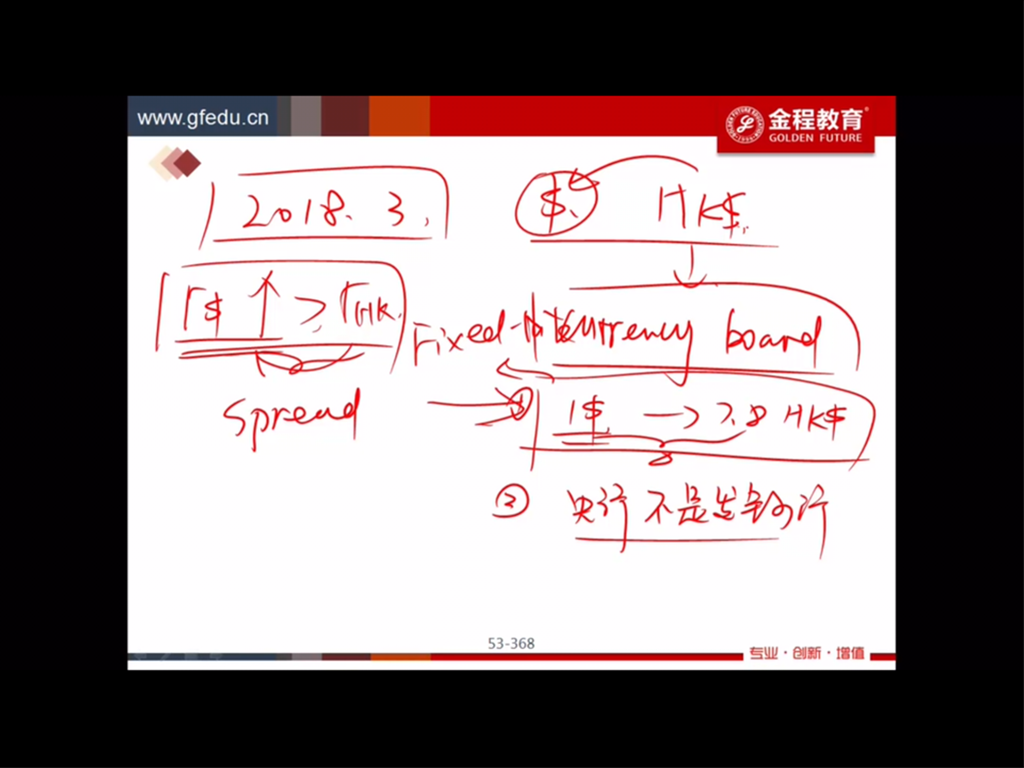 www.gfedu.cn
金程教育
GOLDEN FUTURE
2018. 3.
$. HK$.
r$ ↑ > rHK.
Fixed currency board
Spread
① 1$ → 7.8 HK$
② 央行 不是发钞行
53-368
专业·创新·增值